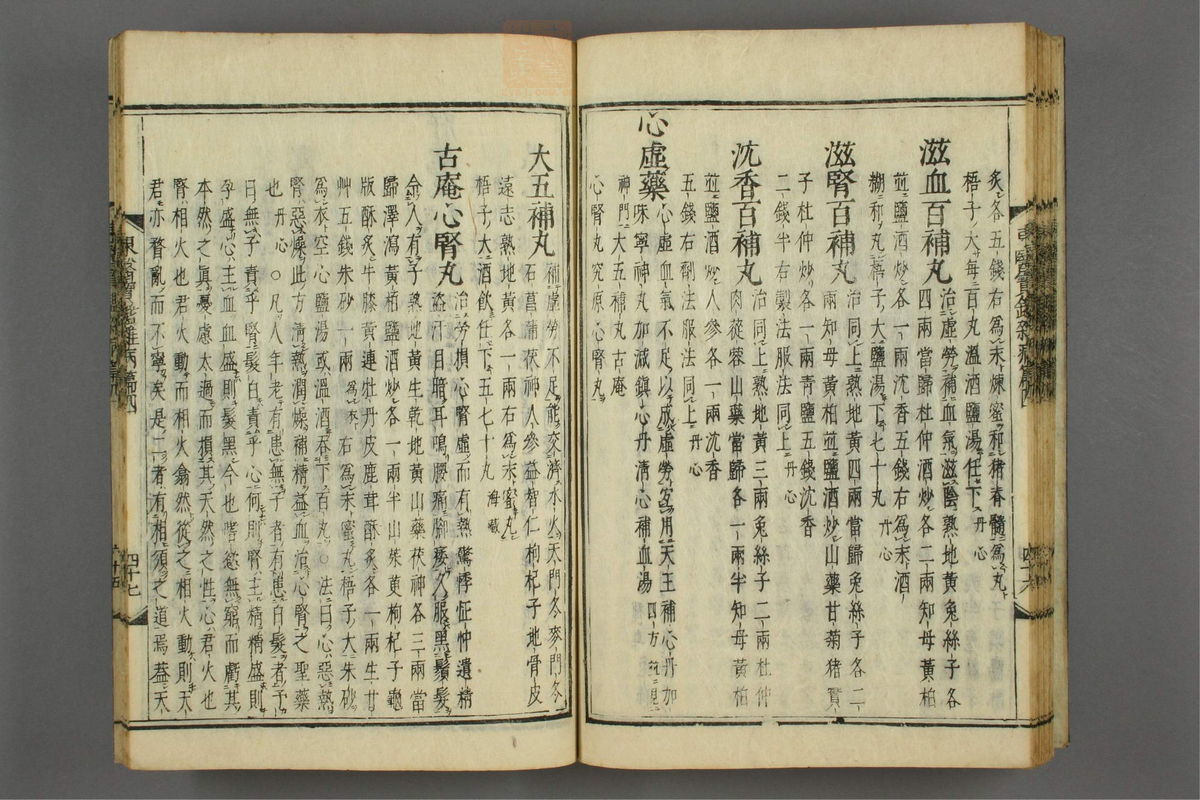 炙各五錢右爲末煉蜜和猪脊髓爲丸
梧子大每百丸溫酒鹽湯任下丹心
滋血百補丸治虛勞補血氣滋陰熟地黃兔絲子各
四兩當歸杜仲酒炒各二兩知母黃栢
並鹽酒炒各一兩沈香五錢右爲末酒
糊和丸梧子大鹽湯下七十丸丹心
滋腎百補丸治同上熟地黃四兩當歸兔絲子各二
兩知母黃栢並鹽酒炒山藥甘菊猪實
子杜仲炒各一兩靑鹽五錢沈香
二錢半右製法服法同上丹心
沈香百補丸治同上熟地黃三兩兔絲子二兩杜仲
肉蓯蓉山藥當歸各一兩半知母黃栢
並鹽酒炒人參各一兩沈香
五錢右劑法服法同上丹心
心虛藥心虛血氣不足以成虛勞宜用天王補心丹加
味寧神丸加減鎭心丹淸心補血湯四方並見
神門大五補丸古庵
心腎丸究原心腎丸
大五補丸補虛勞不足能交濟水火天門冬麥門冬
石菖蒲茯神人參益智仁枸杞子地骨皮
遠志熟地黃各一兩右爲末蜜丸
梧子大酒飲任下五七十丸海藏
古庵心腎丸治勞損心腎虛而有熱驚悸怔忡遺精
盜汗目暗耳鳴腰痛脚痿久服黑鬚髮
令人有子熟地黃生乾地黃山藥茯神各三兩當
歸澤瀉黃栢鹽酒炒各一兩半山茱萸枸杞子龜
版酥炙牛膝黃連牡丹皮鹿茸酥炙各一兩生甘
艸五錢朱砂一兩爲衣右爲末蜜丸梧子大朱砂
爲衣空心鹽湯或溫酒吞下百丸○法曰心惡熱
腎惡燥此方淸熱潤燥補精益血治心腎之聖藥
也丹心○凡人年老有患無子者有患白髮者予
曰無子責乎腎髮白責乎心何則腎主精精盛則
孕盛心主血血盛則髮黑今也嗜慾無窮而虧其
本然之眞憂慮太過而損其天然之性心君火也
腎相火也君火動而相火翕然從之相火動則天
君亦瞀亂而不寧矣是二者有相須之道焉蓋天
東醫寶鑑雜病篇四
四十七